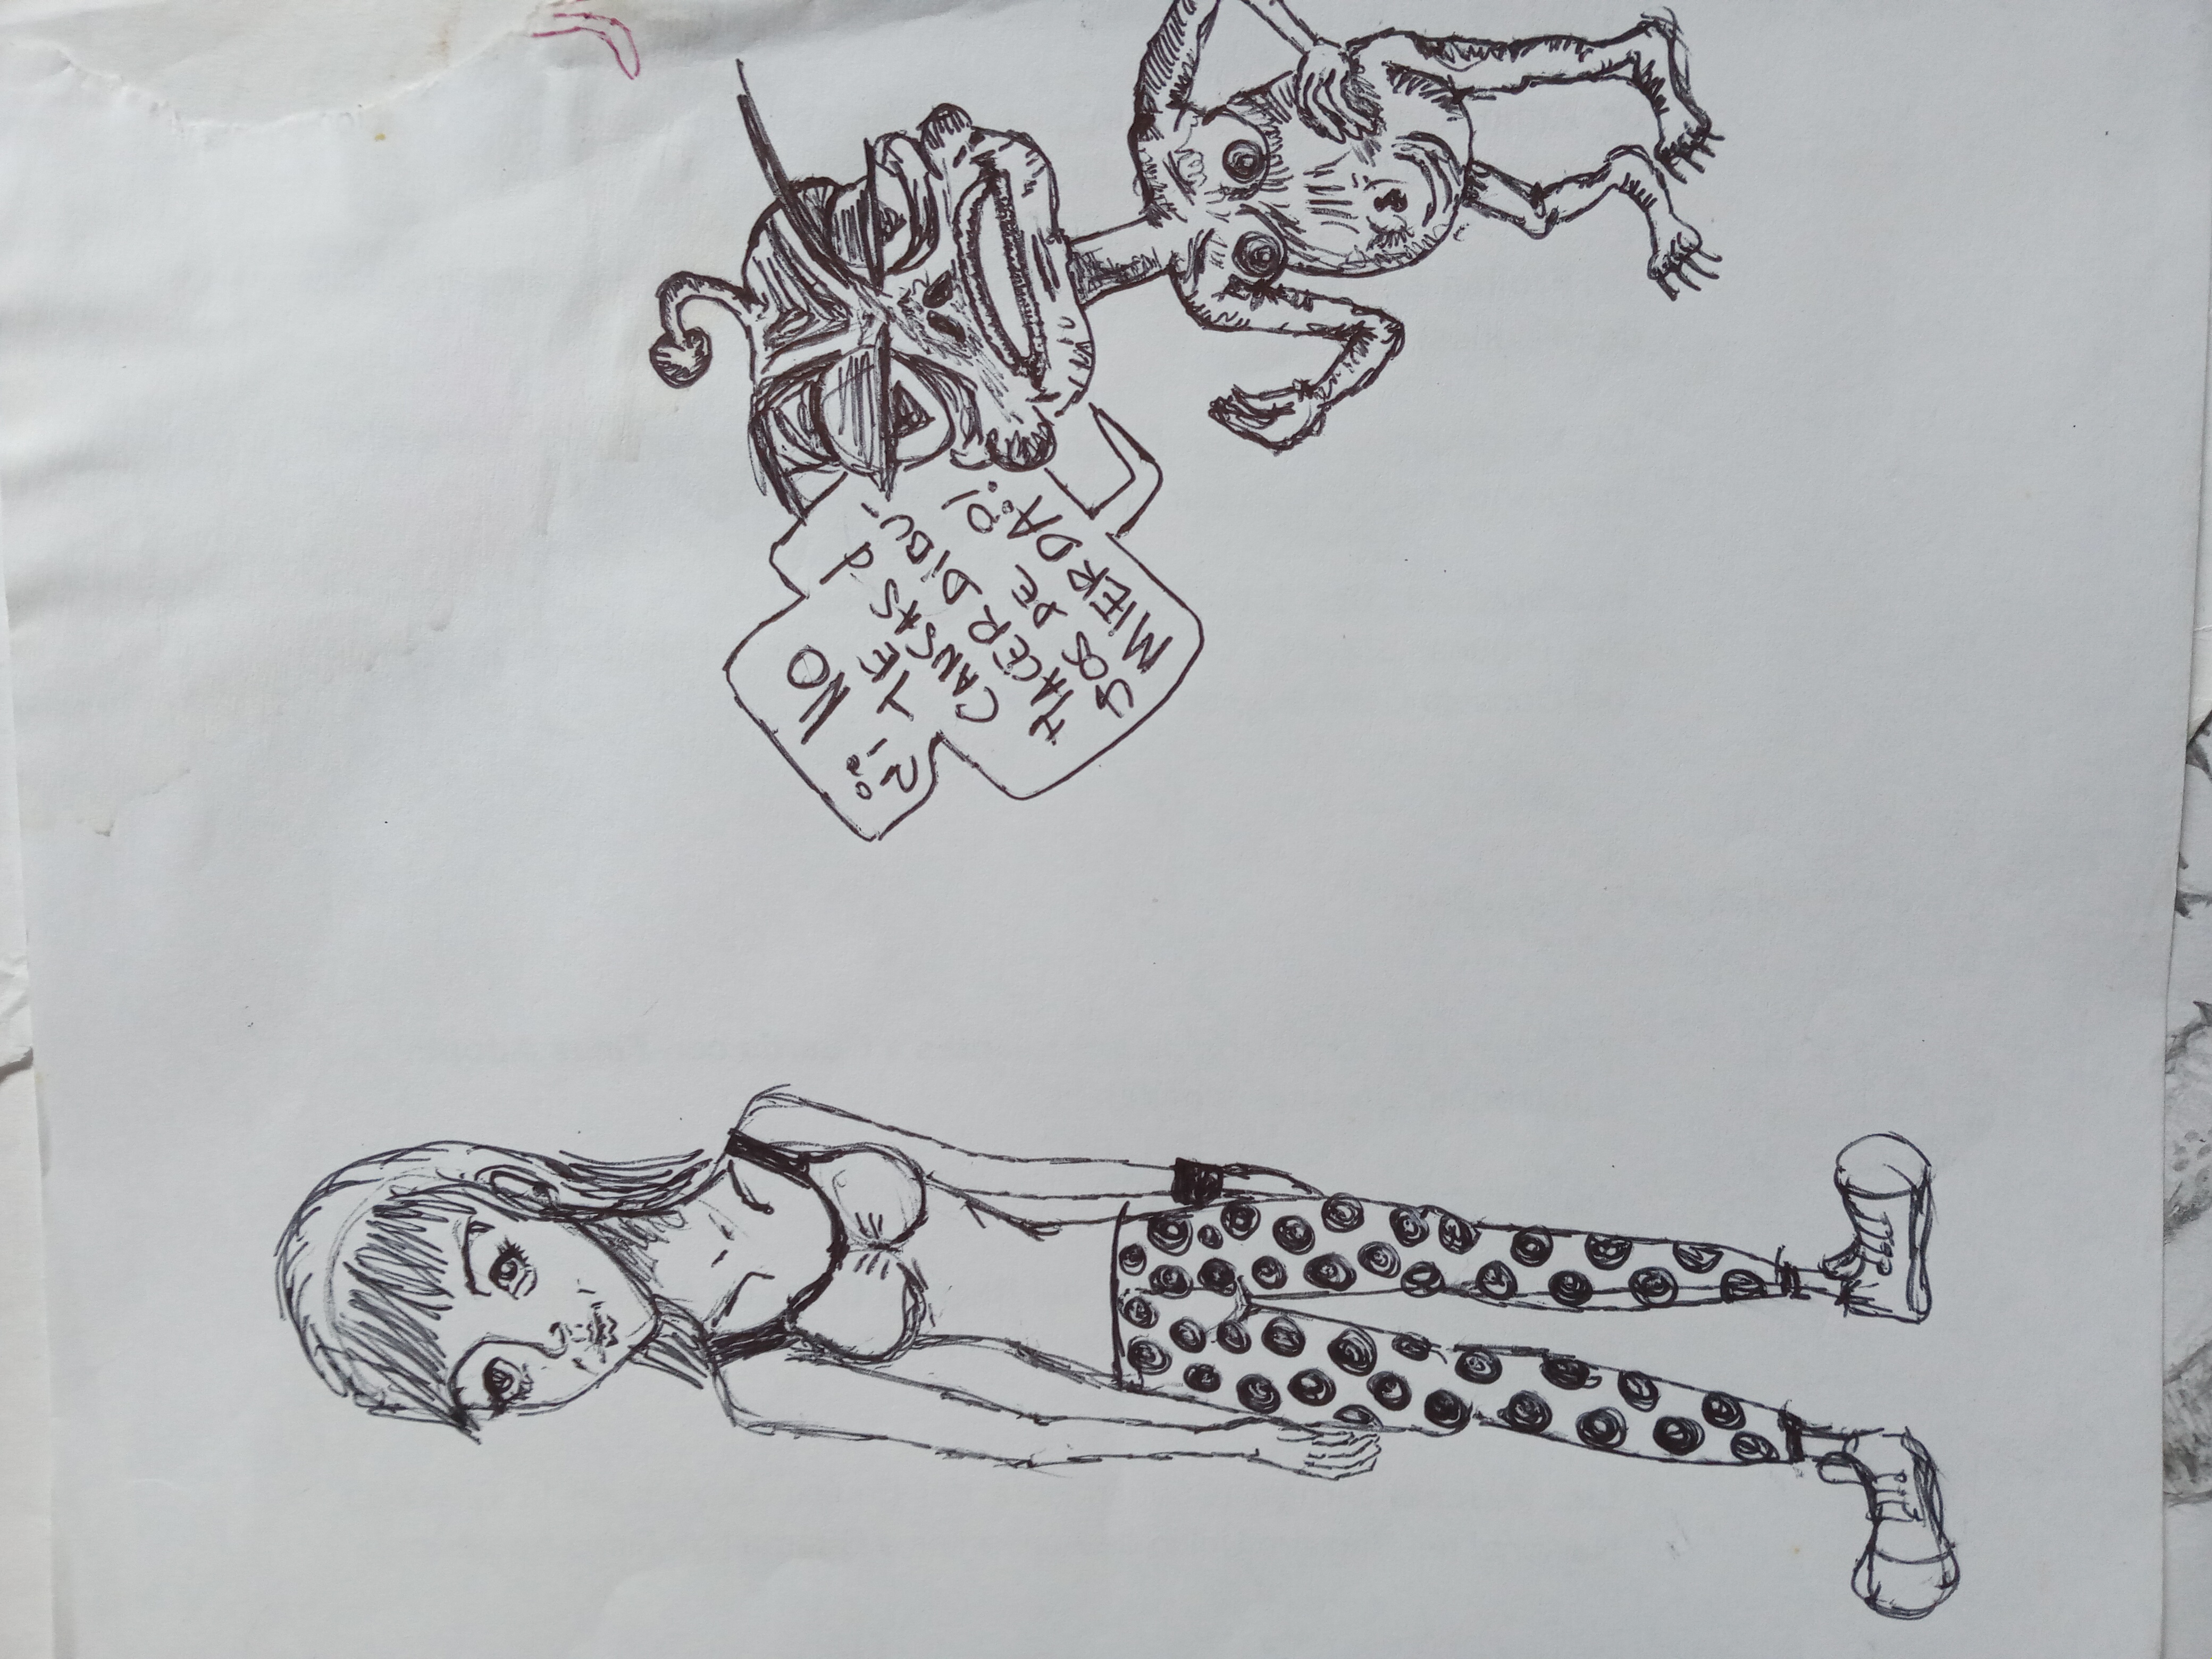 ¿¡NO
TE
CANSAS d
HACER DIBU-
JOS DE
MIERDA?!